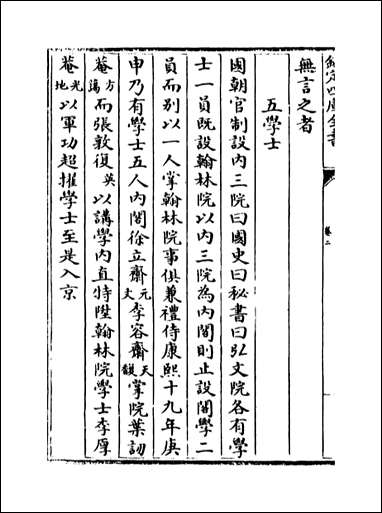 欽定四庫全書
卷二
無言之者
五學士
國朝官制設內三院曰國史曰秘書曰弘文院各有學
士一員既設翰林院以內三院為內閣則止設閣學二
員而別以一人掌翰林院事俱兼禮侍康熙十九年庚
申乃有學士五人內閣徐立齋元文李容齋天馥掌院葉訒
菴方藹而張敦復英以講學內直特陞翰林院學士李厚
菴光地以軍功超擢學士至是入京